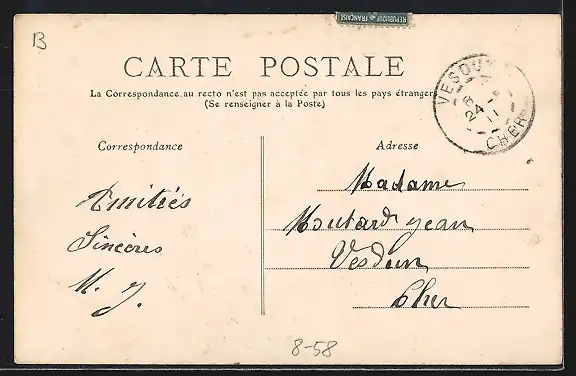 B
REPUBLIQUE FRANÇAISE
CARTE POSTALE
La Correspondance au recto n'est pas acceptée par tous les pays étrangers
(Se renseigner à la Poste)
VESDUN
24
11
CHER
Correspondance
Adresse
Amitiés
Sincères
M. J.
Madame
Moutard Jean
Vesdun
Cher
8-58